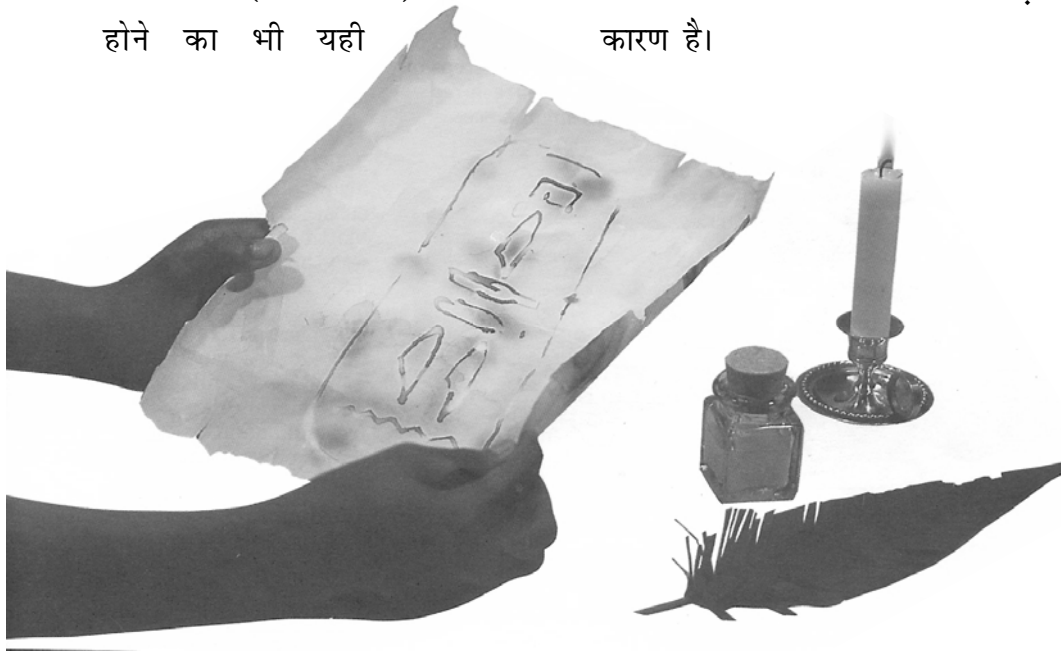 होने का भी यही कारण है।